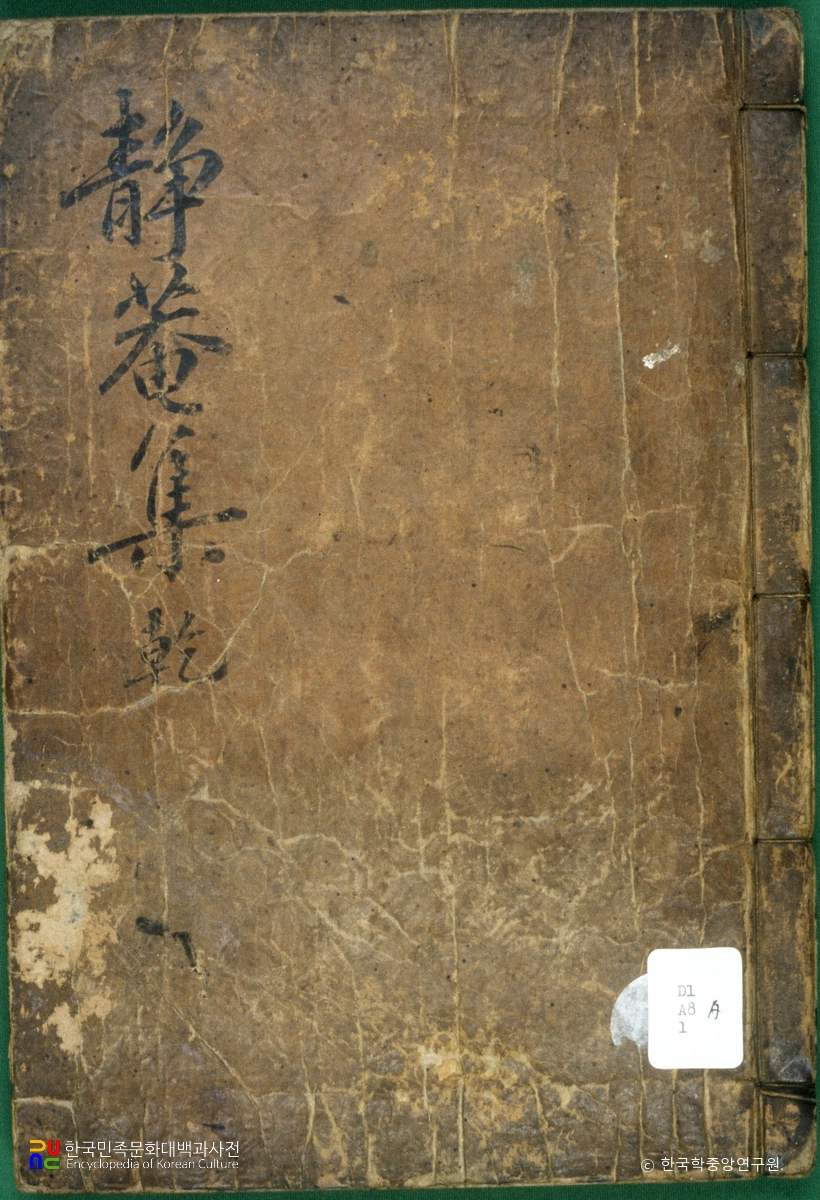 静菴集 乾
D1
A8
1
한국민족문화대백과사전
Encyclopedia of Korean Culture
© 한국학중앙연구원